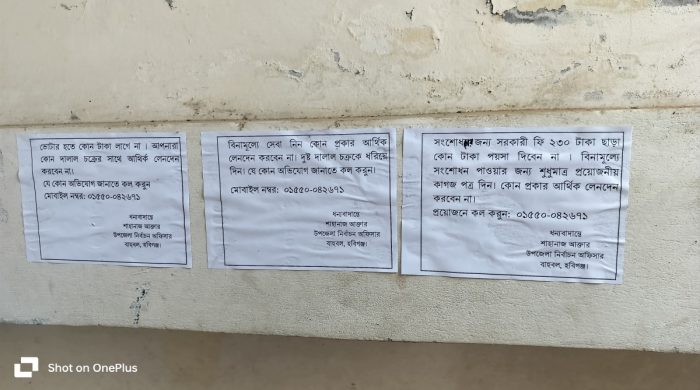 ভোটার হতে কোন টাকা লাগে না । আপনারা
কোন দালাল চক্রের সাথে আর্থিক লেনদেন
করবেন না।
যে কোন অভিযোগ জানাতে কল করুন
মোবাইল নম্বর: ০১৫৫০-০৪২৬৭১
ধন্যবাদান্তে
শাহানাজ আক্তার
উপজেলা নির্বাচন অফিসার
বাহুবল, হবিগঞ্জ।
বিনামূল্যে সেবা নিন কোন প্রকার আর্থিক
লেনদেন করবেন না। দুষ্ট দালাল চক্রকে ধরিয়ে
দিন। যে কোন অভিযোগ জানাতে কল করুন।
মোবাইল নম্বর: ০১৫৫০-০৪২৬৭১
ধন্যবাদান্তে
শাহানাজ আক্তার
উপজেলা নির্বাচন অফিসার
বাহুবল, হবিগঞ্জ।
সংশোধন জন্য সরকারী ফি ২৩০ টাকা ছাড়া
কোন টাকা পয়সা দিবেন না । বিনামূল্যে
সংশোধন পাওয়ার জন্য শুধুমাত্র প্রয়োজনীয়
কাগজ পত্র দিন। কোন প্রকার আর্থিক লেনদেন
করবেন না।
প্রয়োজনে কল করুন: ০১৫৫০-০৪২৬৭১
ধন্যবাদান্তে
শাহানাজ আক্তার
উপজেলা নির্বাচন অফিসার
বাহুবল, হবিগঞ্জ।
Shot on OnePlus